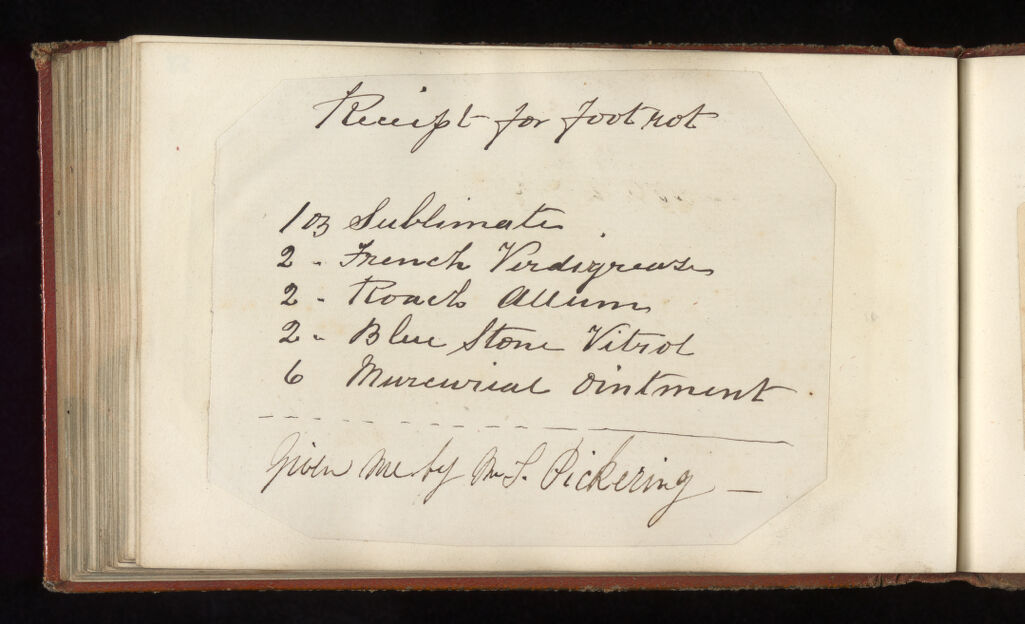 Receipt for footrot
1 oz Sublimate
2 - French Verdigrease
2 - Roach Allum
2 - Blue Stone Vitrol
6 Murcurical Ointment
Given me by Mr S. Pickering —